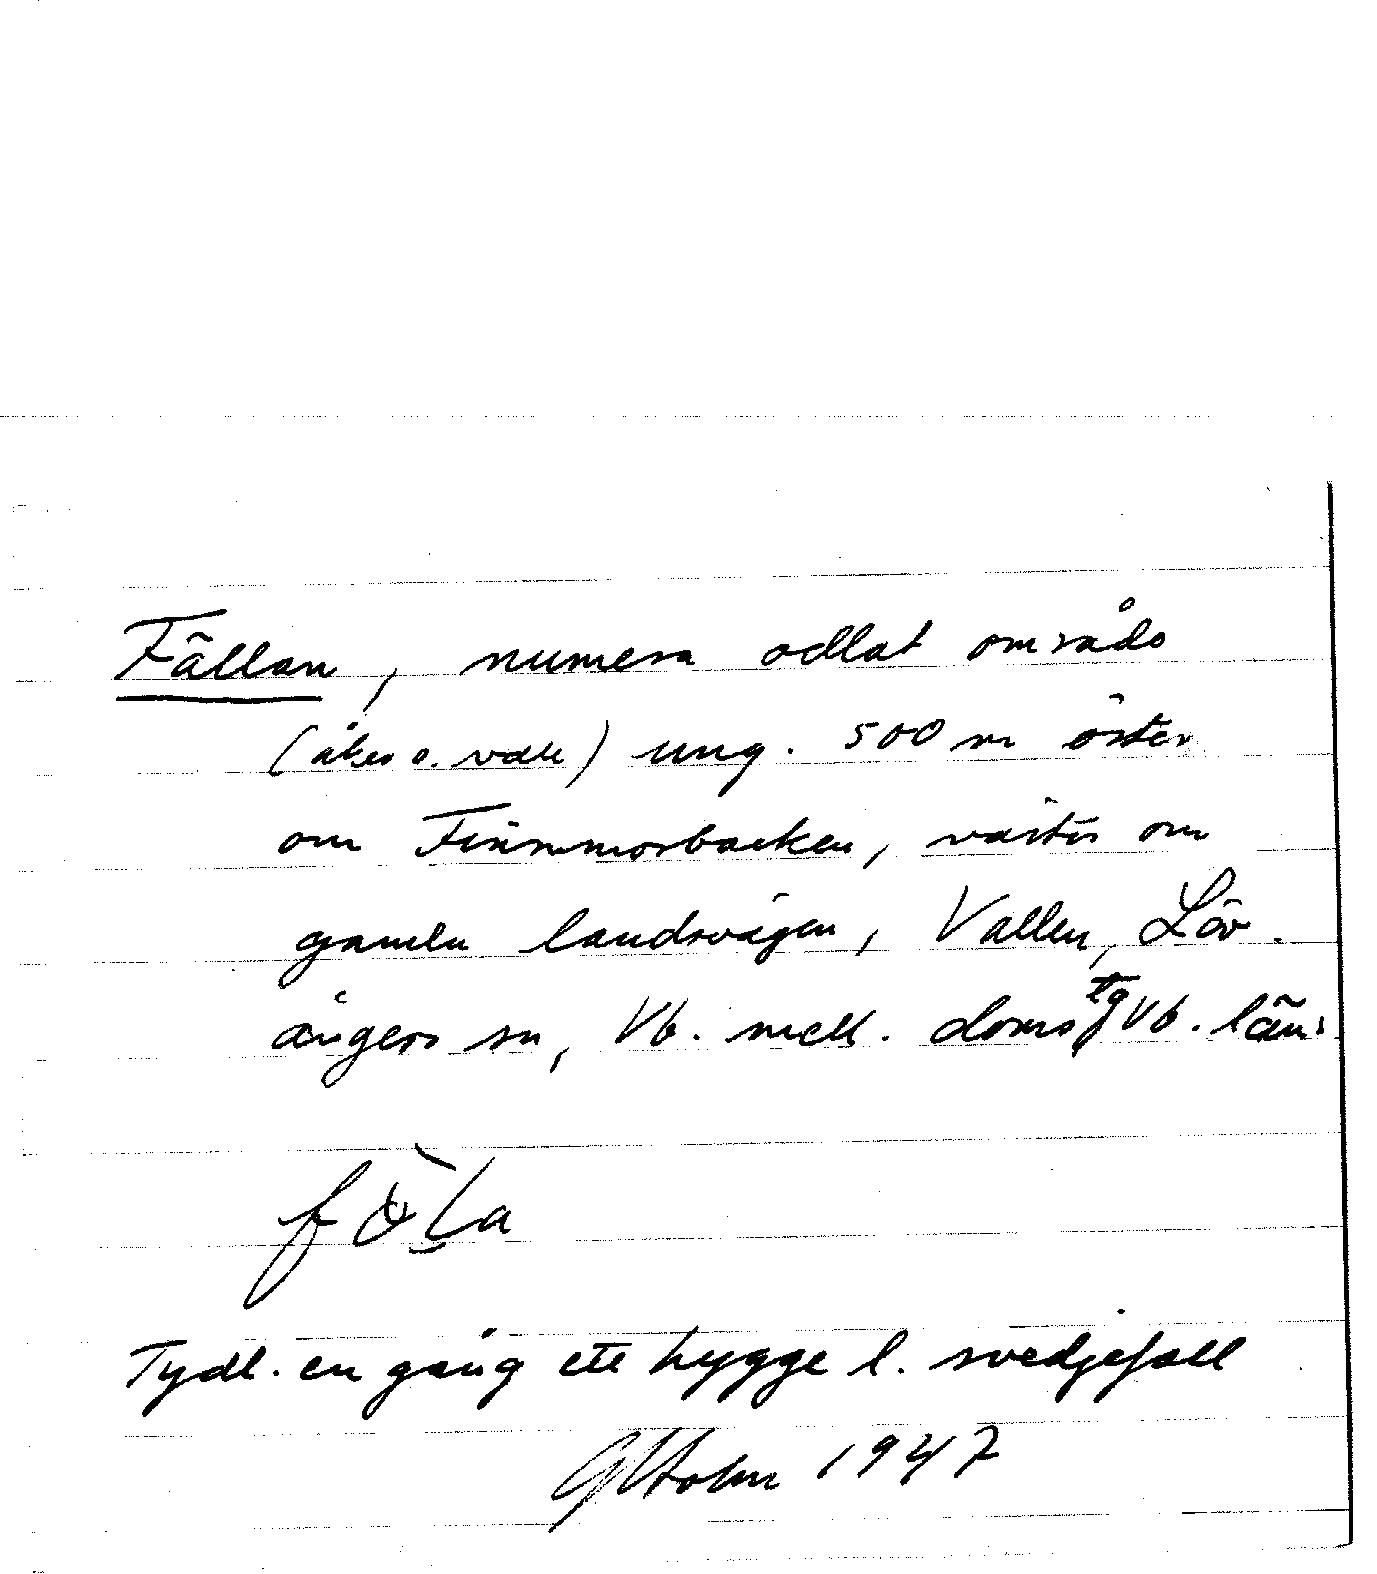 Fällan, numera odlat område
(åker o. vall) ung. 500 m öster
om Finnmorbacken, väster om
gamla landsvägen, Vallen, Löv-
ångers sn, Vb. mell. doms tg Vb. län.
Tydl. en gång ett hygge l. svedjefall
G Holm 1947